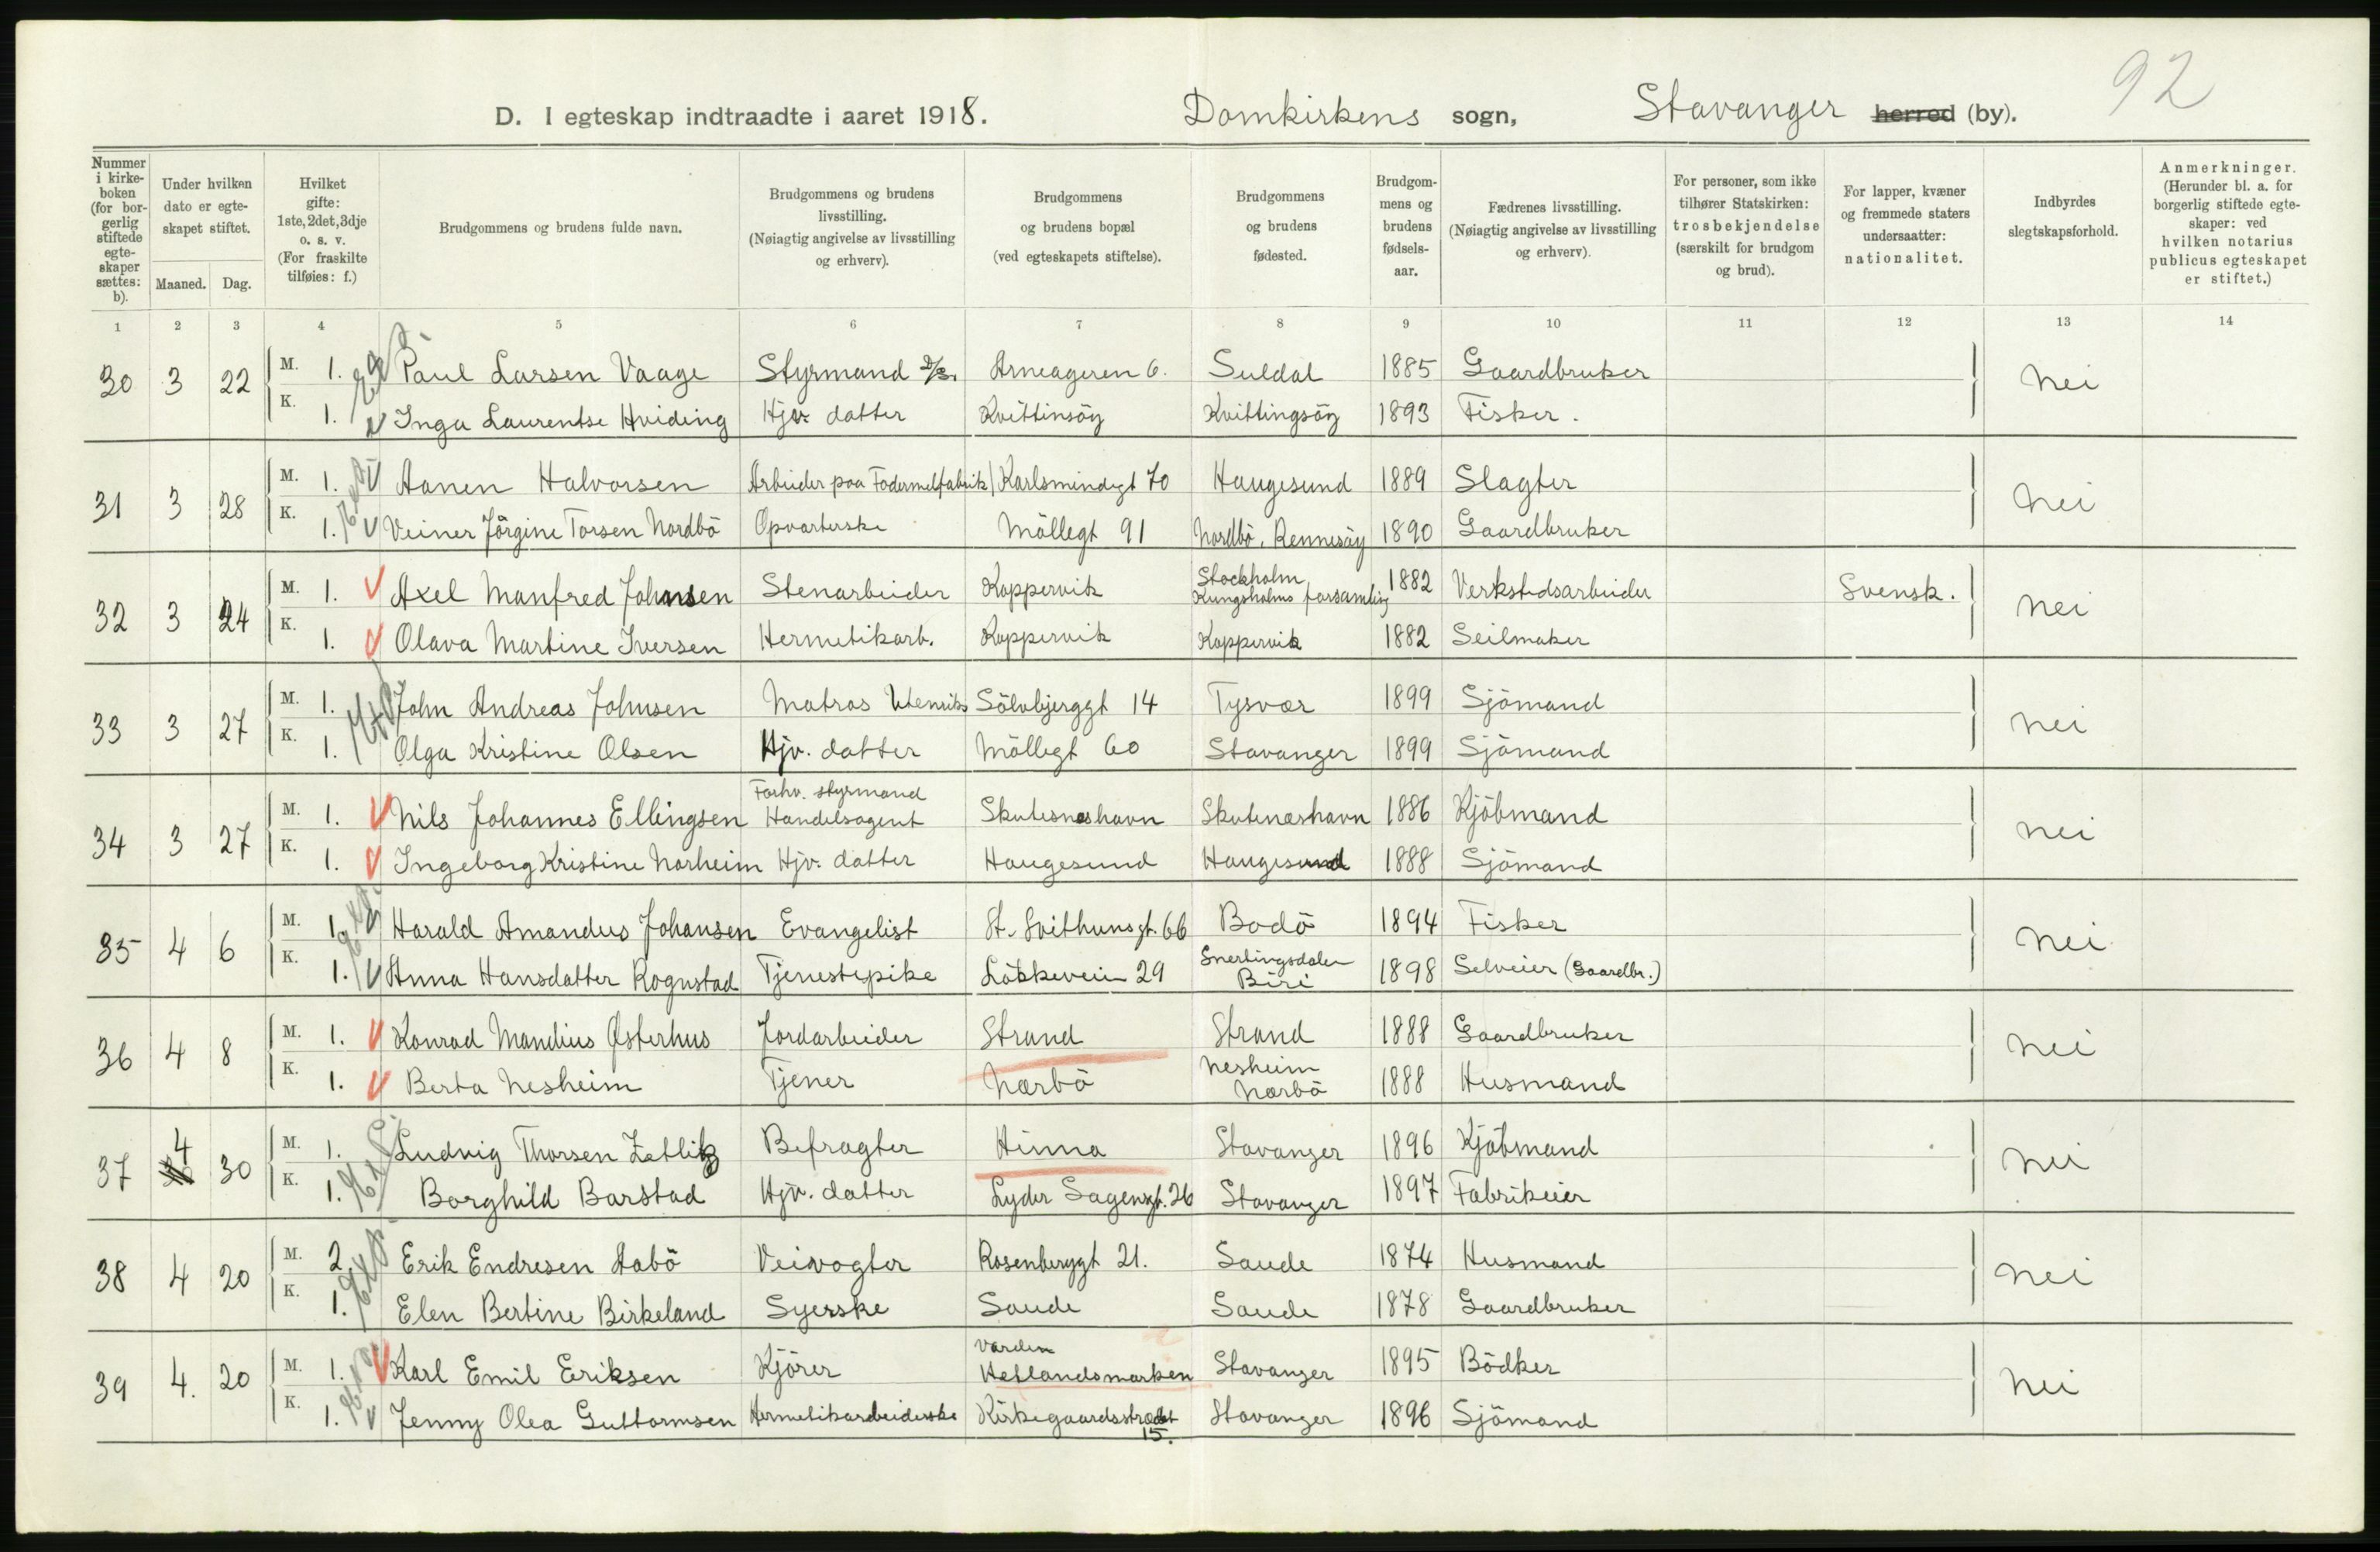 92
D. I egteskap indtraadte i aaret 1918. Domkirkens sogn, Stavanger herred (by).
Nummer i kirke-boken (for bor-gerlig stiftede egte-skaper sættes: b). Under hvilken dato er egte-skapet stiftet. Maaned. Dag. Hvilket gifte: 1ste, 2det, 3dje o. s. v. (For fraskilte tilføies: f.) Brudgommens og brudens fulde navn. Brudgommens og brudens livsstilling. (Nøiagtig angivelse av livsstilling og erhverv). Brudgommens og brudens bopæl (ved egteskapets stiftelse). Brudgommens og brudens fødested. Brudgom-mens og brudens fødsels-aar. Fædrenes livsstilling. (Nøiagtig angivelse av livsstilling og erhverv). For personer, som ikke tilhører Statskirken: trosbekjendelse (særskilt for brudgom og brud). For lapper, kvæner og fremmede staters undersaatter: nationalitet. Indbyrdes slegtskapsforhold. Anmerkninger. (Herunder bl. a. for borgerlig stiftede egte-skaper: ved hvilken notarius publicus egteskapet er stiftet.)
1 2 3 4 5 6 7 8 9 10 11 12 13 14
30 3 22 M. 1. Paul Larsen Vaage Styrmand Arneageren 6. Suldal 1885 Gaardbruker Nei
K. 1. Inga Laurentse Hviding Hjv. datter Kvittinsöy Kvittingsöy 1893 Fisker.
31 3 28 M. 1. Aanen Halvorsen Arbeider paa Fodermelfabrik Karlsmindegt 70 Haugesund 1889 Slagter Nei
K. 1. Veiner Jörgine Torsen Nordbö Opvarterske Möllegt 91 Nordbö, Rennesöy 1890 Gaardbruker
32 3 24 M. 1. Axel Manfred Johnsen Stenarbeider Koppervik Stockholm Kungsholms forsamling 1882 Verkstedsarbeider Svensk. Nei
K. 1. Olava Martine Iversen Hermetikarb. Koppervik Koppervik 1882 Seilmaker
33 3 27 M. 1. John Andreas Johnsen Matros Utenriks Sölvbjerggt 14 Tysvær 1899 Sjömand Nei
K. 1. Olga Kristine Olsen Hjv. datter Möllegt 60 Stavanger 1899 Sjömand
34 3 27 M. 1. Nils Johannes Ellingsen Forhv. styrmand Handelsagent Skutesneshavn Skutenæshavn 1886 Kjöbmand Nei
K. 1. Ingeborg Kristine Norheim Hjv. datter Haugesund Haugesund 1888 Sjömand
35 4 6 M. 1. Harald Amandus Johansen Evangelist St. Svithunsgt. 66 Bodö 1894 Fisker Nei
K. 1. Anna Hansdatter Rognstad Tjenestepike Lökkeveien 29 Snertingsdalen Biri 1898 Selveier (Gaardbr.)
36 4 8 M. 1. Konrad Mandius Østerhus Jordarbeider Strand Strand 1888 Gaardbruker Nei
K. 1. Berta Nesheim Tjener Nærbö Nesheim Nærbö 1888 Husmand
37 4 30 M. 1. Ludvig Thorsen Zetlitz Befragter Hinna Stavanger 1896 Kjöbmand Nei
K. 1. Borghild Barstad Hjv. datter Lyder Sagensgt. 26 Stavanger 1897 Fabrikeier
38 4 20 M. 2. Erik Endresen Aabö Veivogter Rosenberggt 21. Saude 1874 Husmand Nei
K. 1. Elen Bertine Birkeland Syerske Saude Saude 1878 Gaardbruker
39 4. 20 M. 1. Karl Emil Eriksen Kjörer Varden Hetlandsmarken Stavanger 1895 Bödker Nei
K. 1. Jenny Olea Guttormsen Hermetikarbeiderske Kirkegaardsstrædet 15. Stavanger 1896 Sjömand